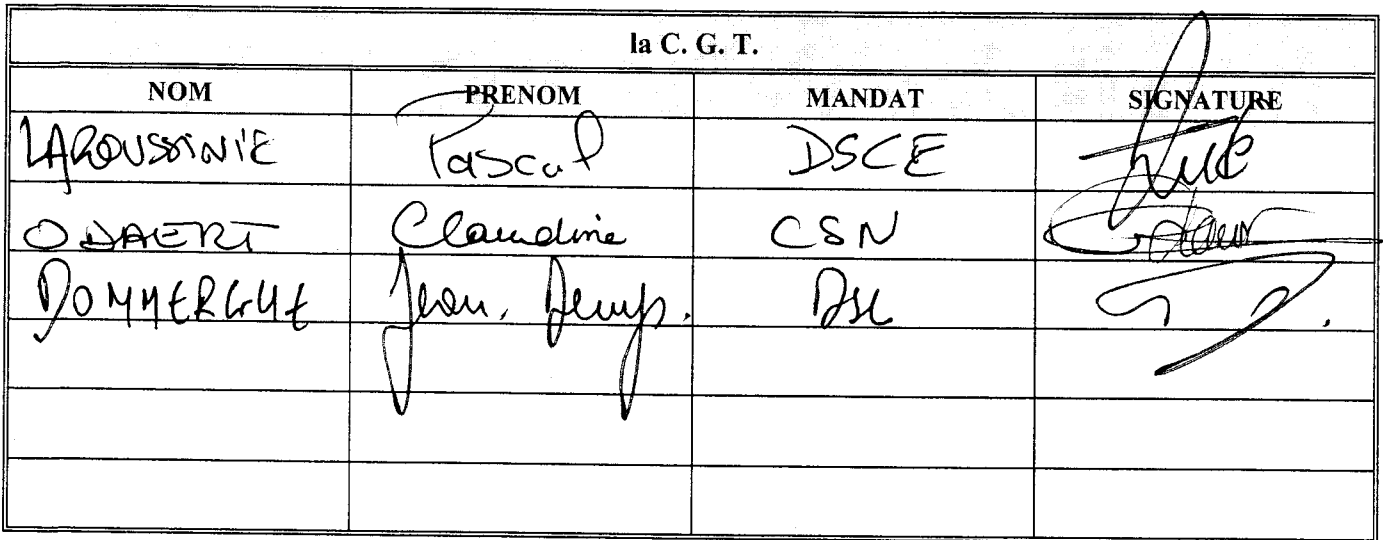 la C. G. T.
NOM PRENOM MANDAT SIGNATURE
LAROUSSINIE Pascal DSCE
ODAERT Claudine CSN
DOMMERGUE Jean. Denys. DSC